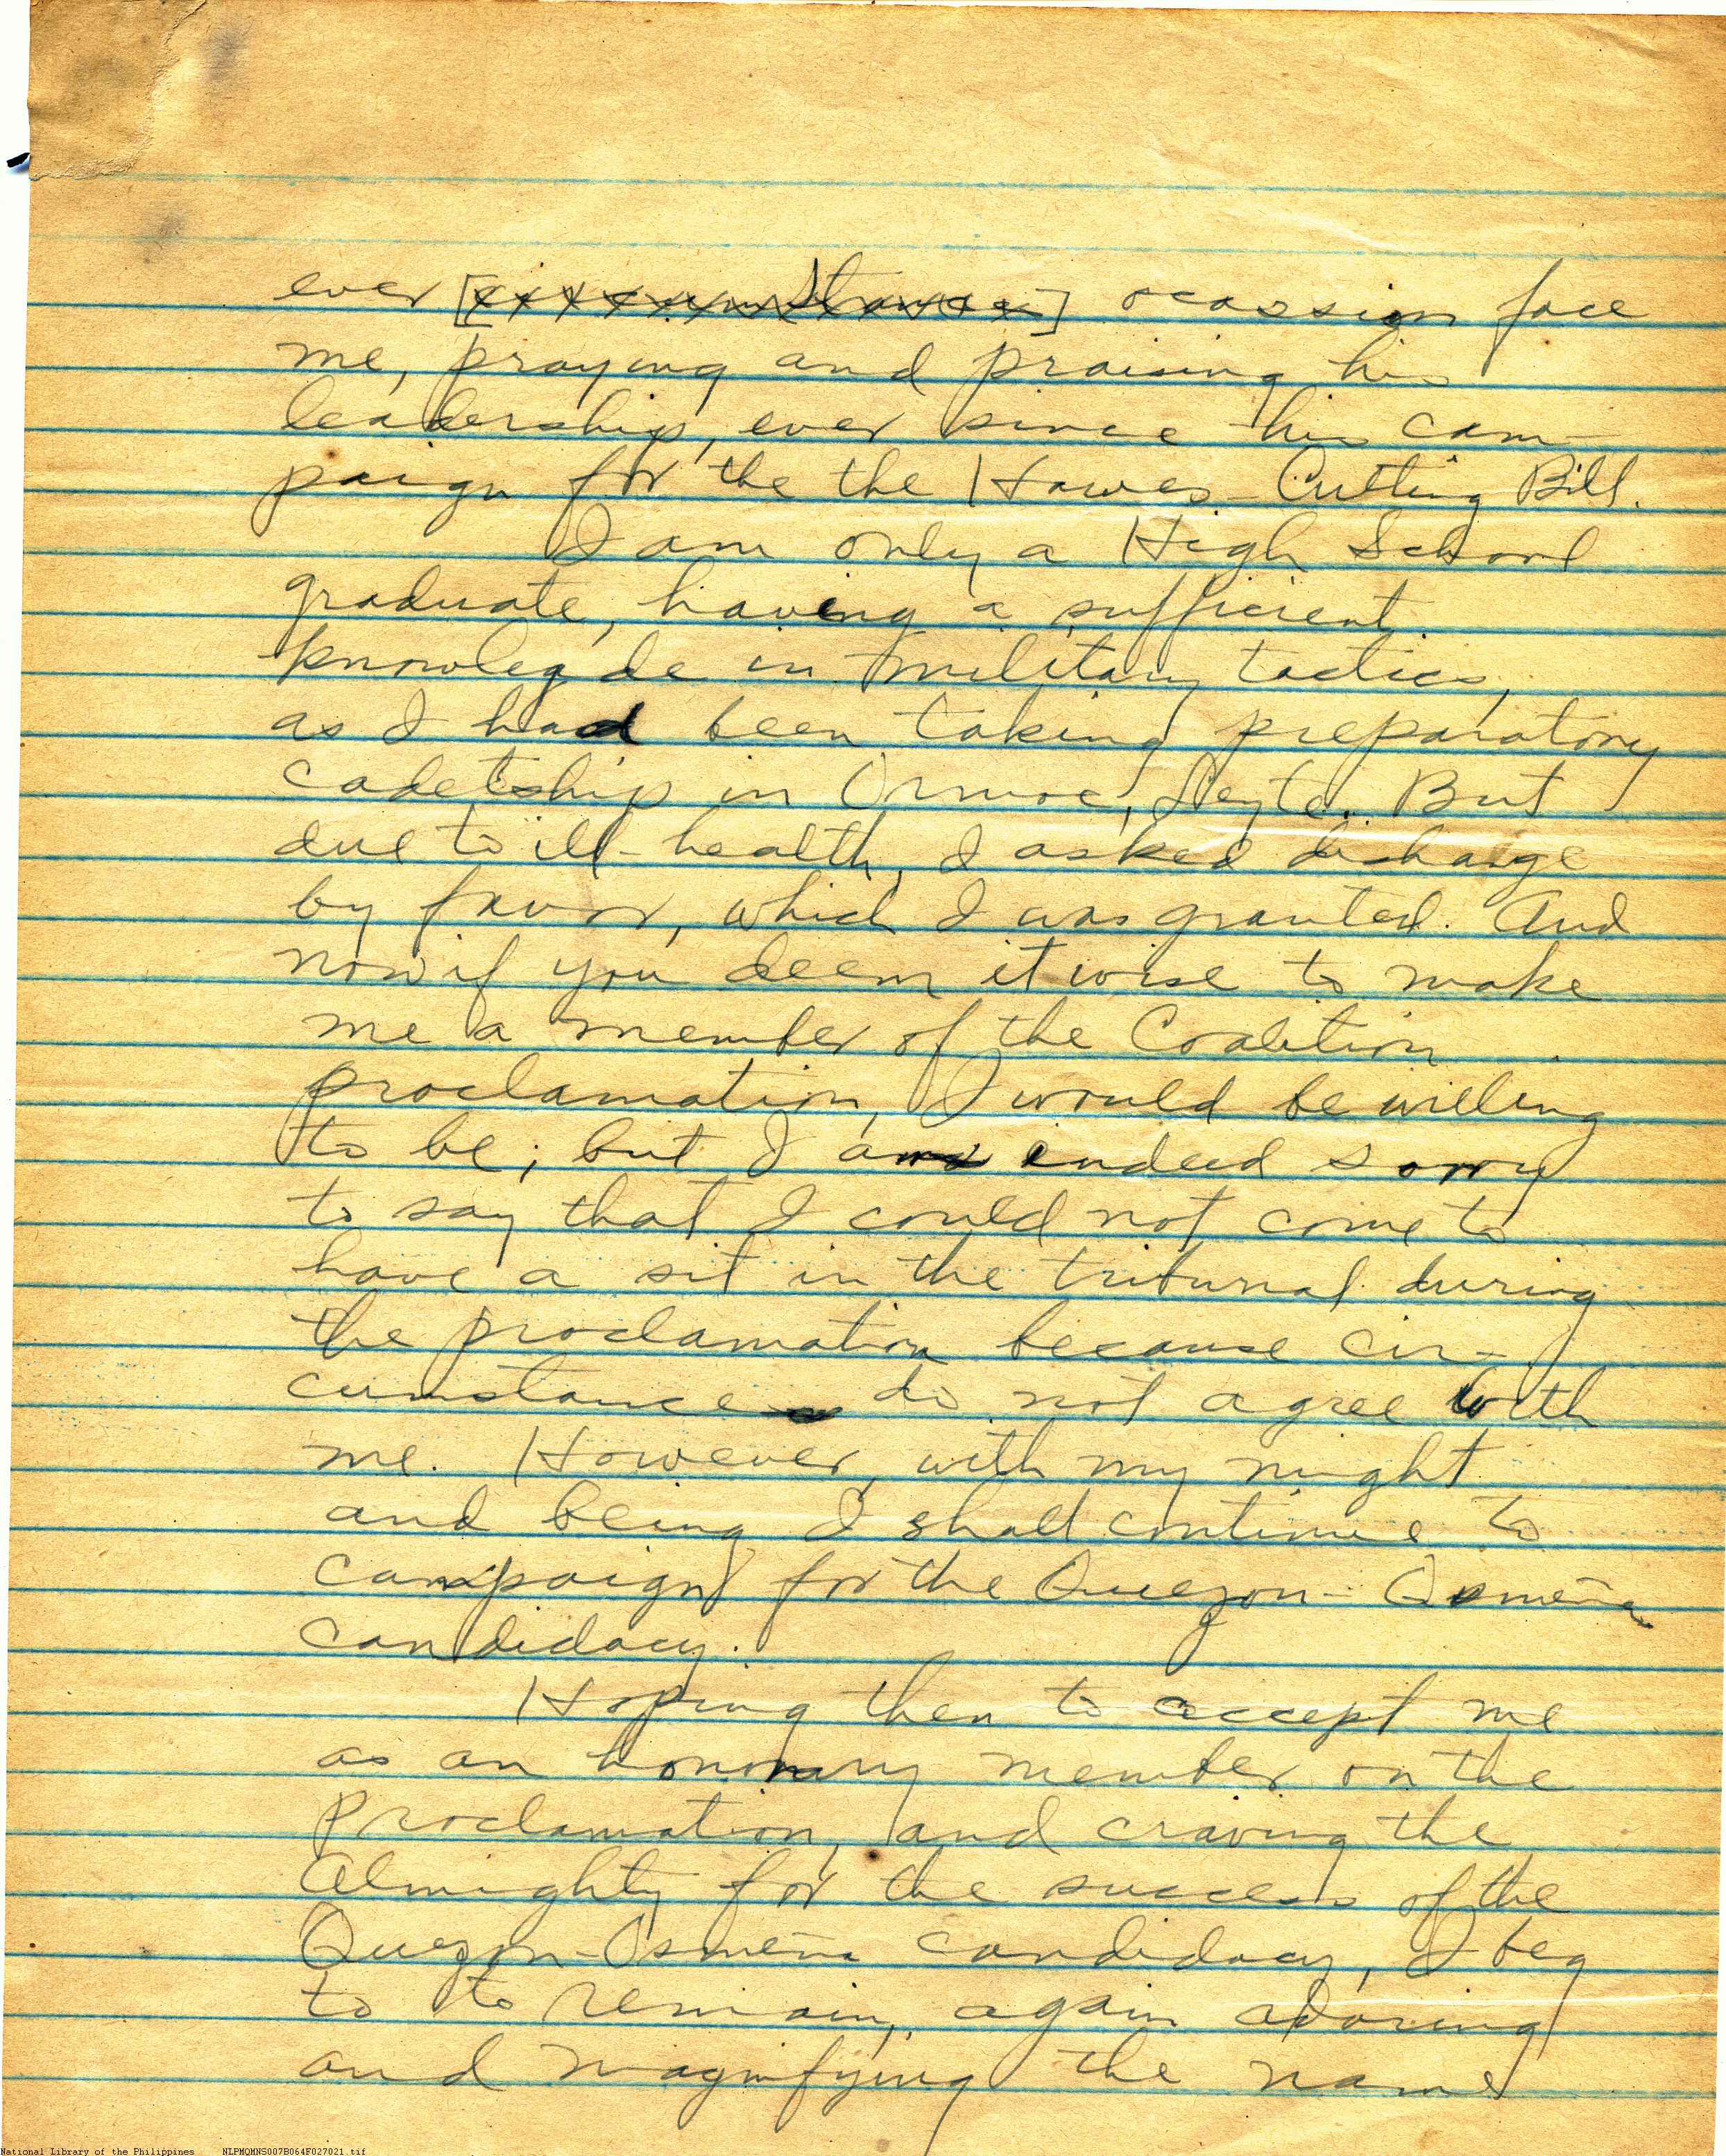 ever [circumstances] ocassion face
me, praying and praising his
leadership, ever since his cam-
paign for the the Hawes-Cutting Bill.
I am only a High School
graduate, having a sufficient
knowlegde in military tactics,
as I had been taking preparatory
cadetship in Ormoc, Leyte. But
due to ill-health, I asked discharge
by favor, which I was granted. And
now if you deem it wise to make
me a member of the Coalition
proclamation, I would be willing
to be; but I am indeed sorry
to say that I could not come to
have a sit in the tribunal during
the proclamation because cir-
cumstances do not agree with
me. However, with my might
and being I shall continue to
campaign for the Quezon-Osmeña
candidacy.
Hoping then to accept me
as an honorary member on the
Proclamation, and craving the
Almighty for the success of the
Quezon-Osmeña candidacy, I beg
to to remain, again adoring
and magnifying the name
National Library of the Philippines NLPMQMNS007B064F027021.tif